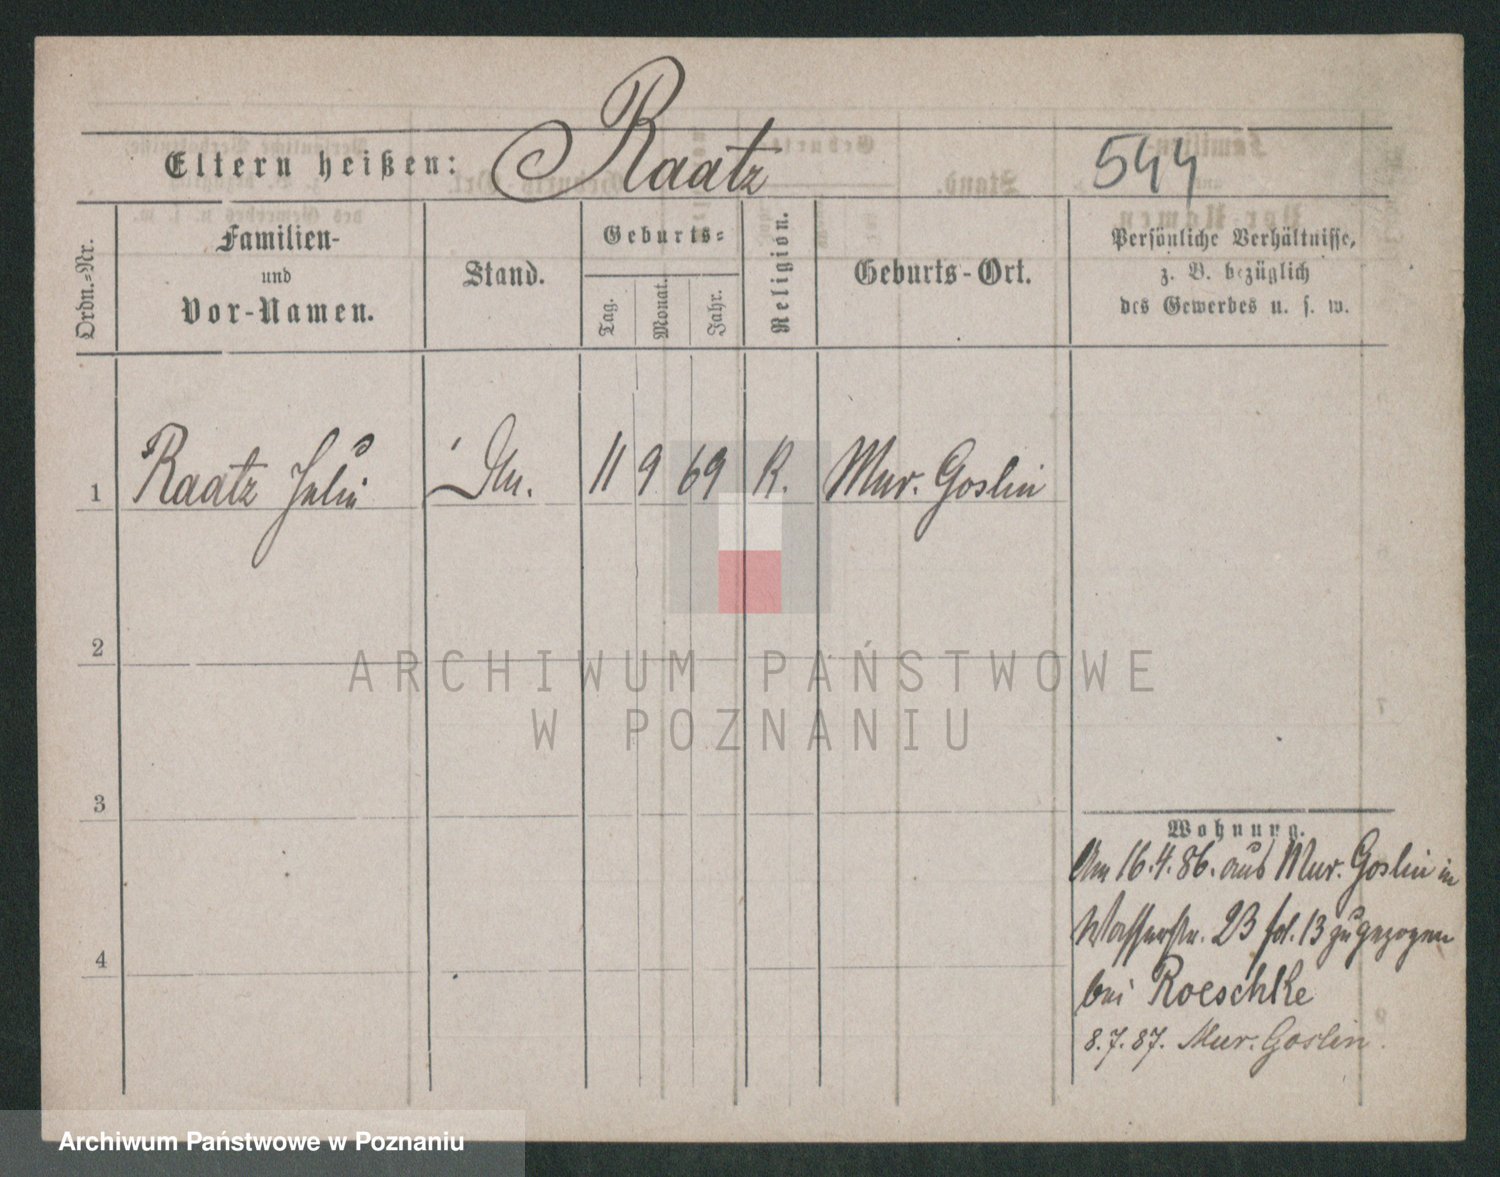 Eltern heißen: Raatz 544
Ordn.-Nr.
Familien-
und
Vor-Namen.
Stand.
Geburts-
Tag. Monat. Jahr.
Religion.
Geburts-Ort.
Persönliche Verhältnisse,
z. B. bezüglich
des Gewerbes u. s. w.
1 Raatz 11 9 69 K. Mur. Goslin
2
3
4
ARCHIWUM PAŃSTWOWE
W POZNANIU
Wohnung.
Am 16.4.86. aus Mur. Goslin in
Wasserstr. 23 13 zugezogen
bei Roeschke
8.7.87. Mur. Goslin.
Archiwum Państwowe w Poznaniu